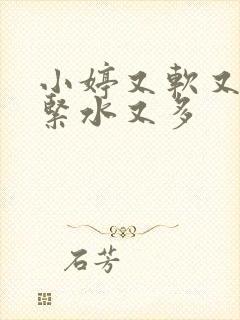 小婷又軟又
緊水又多
石芳